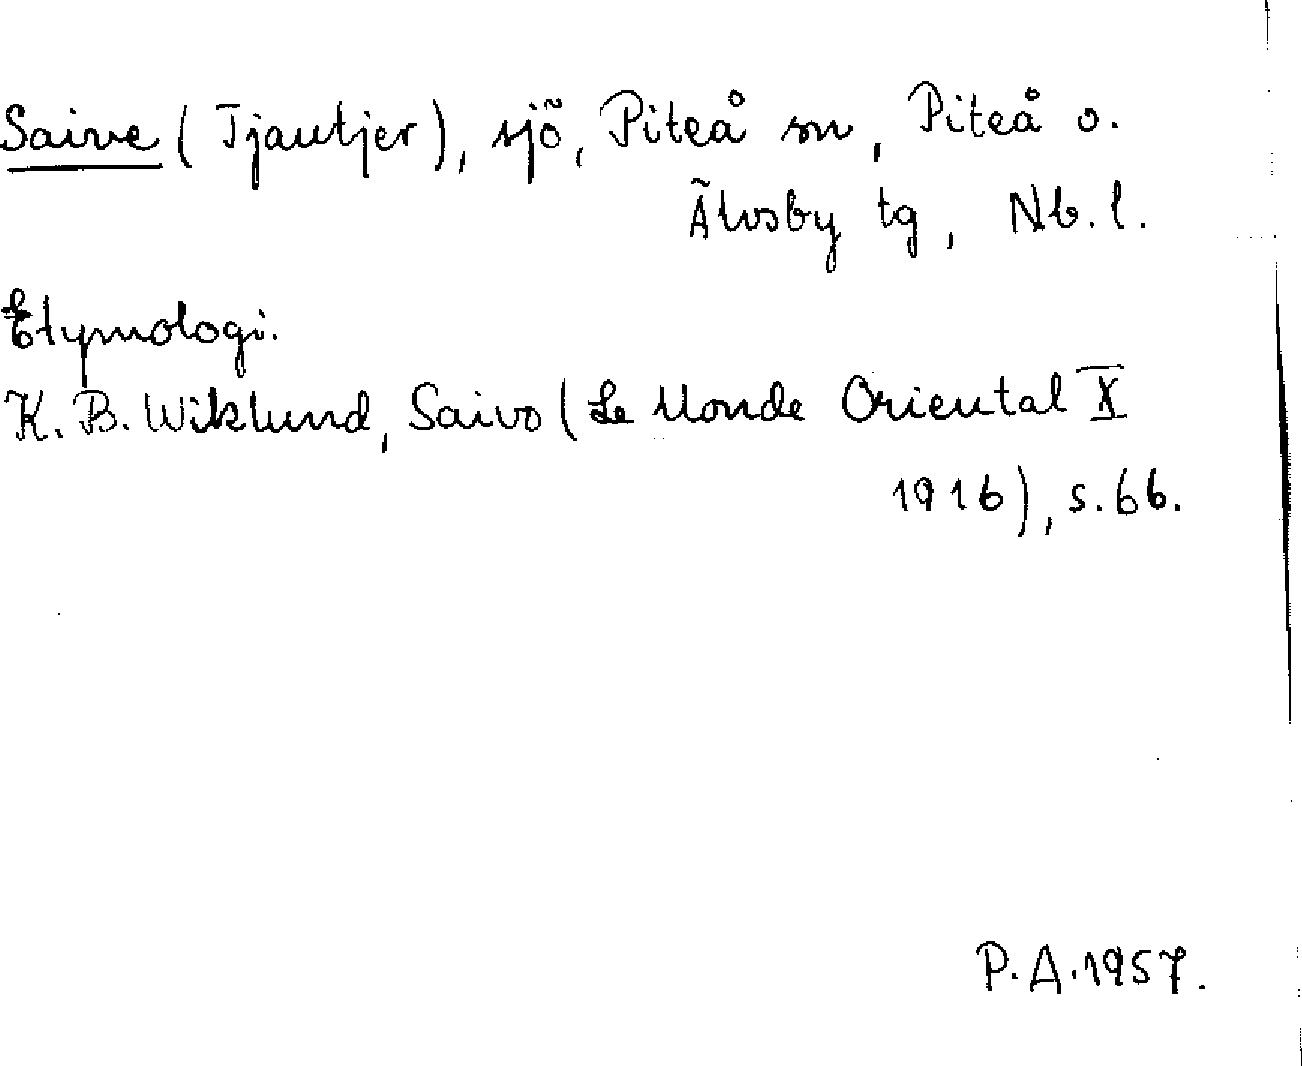 Saive (Tjautjer), sjö, Piteå sn, Piteå o.
Älvsby tg, Nb. l.
Etymologi.
K. B. Wiklund, Saivo (Le Monde Oriental X
1916), s. 66.
P. A. 1957.